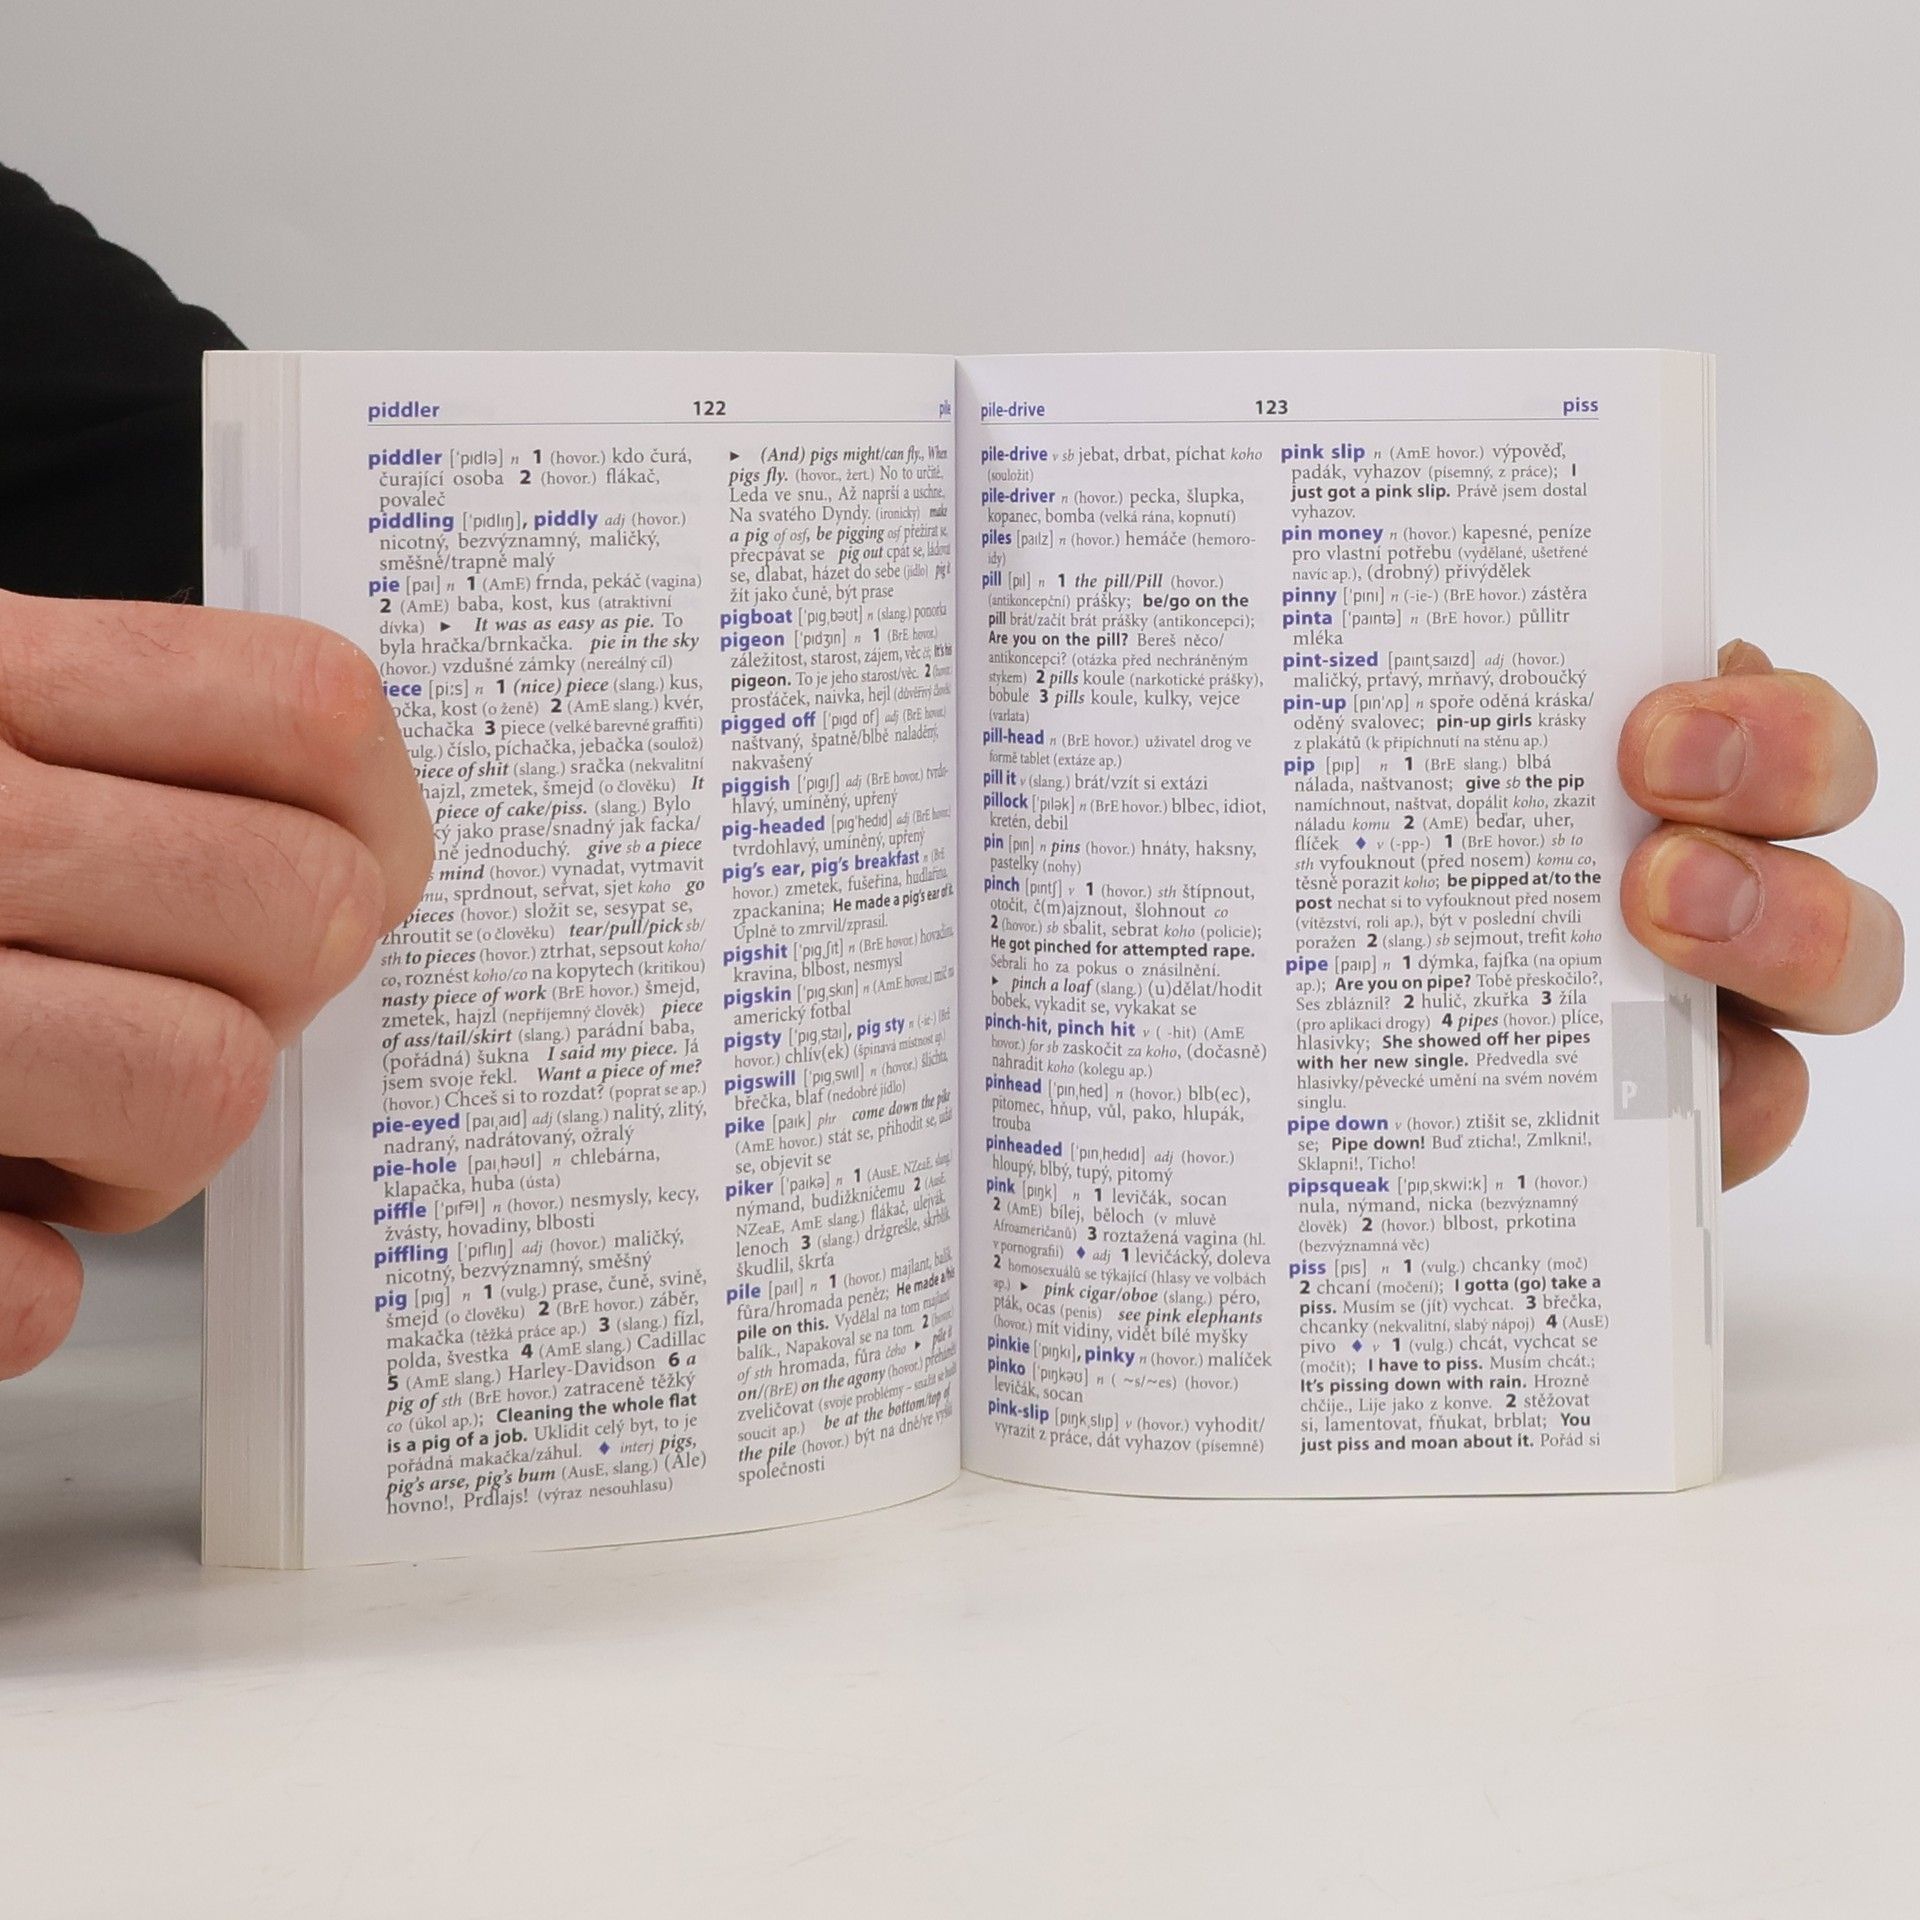 piddler 122 pile
piddler ['pɪdlə] n 1 (hovor.) kdo čurá,
čurající osoba 2 (hovor.) flákač,
povaleč
piddling ['pɪdlɪŋ], piddly adj (hovor.)
nicotný, bezvýznamný, maličký,
směšně/trapně malý
pie [paɪ] n 1 (AmE) frnda, pekáč (vagina)
2 (AmE) baba, kost, kus (atraktivní
dívka) ► It was as easy as pie. To
byla hračka/brnkačka. pie in the sky
(hovor.) vzdušné zámky (nereálný cíl)
iece [pi:s] n 1 (nice) piece (slang.) kus,
očka, kost (o ženě) 2 (AmE slang.) kvér,
uchačka 3 piece (velké barevné graffiti)
ulg.) číslo, píchačka, jebačka (soulož)
piece of shit (slang.) sračka (nekvalitní
hajzl, zmetek, šmejd (o člověku) It
piece of cake/piss. (slang.) Bylo
ký jako prase/snadný jak facka/
ně jednoduchý. give sb a piece
mind (hovor.) vynadat, vytmavit
mu, sprdnout, seřvat, sjet koho go
pieces (hovor.) složit se, sesypat se,
zhroutit se (o člověku) tear/pull/pick sb/
sth to pieces (hovor.) ztrhat, sepsout koho/
co, roznést koho/co na kopytech (kritikou)
nasty piece of work (BrE hovor.) šmejd,
zmetek, hajzl (nepříjemný člověk) piece
of ass/tail/skirt (slang.) parádní baba,
(pořádná) šukna I said my piece. Já
jsem svoje řekl. Want a piece of me?
(hovor.) Chceš si to rozdat? (poprat se ap.)
pie-eyed [paɪˌaɪd] adj (slang.) nalitý, zlitý,
nadraný, nadrátovaný, ožralý
pie-hole [paɪˌhəʊl] n chlebárna,
klapačka, huba (ústa)
piffle ['pɪfəl] n (hovor.) nesmysly, kecy,
žvásty, hovadiny, blbosti
piffling ['pɪflɪŋ] adj (hovor.) maličký,
nicotný, bezvýznamný, směšný
pig [pɪg] n 1 (vulg.) prase, čuně, svině,
šmejd (o člověku) 2 (BrE hovor.) záběr,
makačka (těžká práce ap.) 3 (slang.) fízl,
polda, švestka 4 (AmE slang.) Cadillac
5 (AmE slang.) Harley-Davidson 6 a
pig of sth (BrE hovor.) zatraceně těžký
co (úkol ap.); Cleaning the whole flat
is a pig of a job. Uklidit celý byt, to je
pořádná makačka/záhul. ♦ interj pigs,
pig's arse, pig's bum (AusE, slang.) (Ale)
hovno!, Prdlajs! (výraz nesouhlasu)
► (And) pigs might/can fly., When
pigs fly. (hovor., žert.) No to určitě,
Leda ve snu., Až naprší a uschne,
Na svatého Dyndy. (ironicky) make
a pig of osf, be pigging osf přežírat se,
přecpávat se pig out cpát se, ládovat
se, dlabat, házet do sebe (jídlo) pig it
žít jako čuně, být prase
pigboat ['pɪgˌbəʊt] n (slang.) ponorka
pigeon ['pɪdʒɪn] n 1 (BrE hovor.)
záležitost, starost, zájem, věc čí; It's his
pigeon. To je jeho starost/věc. 2 (hovor.)
prosťáček, naivka, hejl (důvěřivý člověk)
pigged off ['pɪgd ɒf] adj (BrE hovor.)
naštvaný, špatně/blbě naladěný,
nakvašený
piggish ['pɪgɪʃ] adj (BrE hovor.) tvrdo-
hlavý, umíněný, upřený
pig-headed [pɪg'hedɪd] adj (BrE hovor.)
tvrdohlavý, umíněný, upřený
pig's ear, pig's breakfast n (BrE
hovor.) zmetek, fušeřina, hudlařina,
zpackanina; He made a pig's ear of it.
Úplně to zmrvil/zprasil.
pigshit ['pɪgˌʃɪt] n (BrE hovor.) hovadina,
kravina, blbost, nesmysl
pigskin ['pɪgˌskɪn] n (AmE hovor.) míč na
americký fotbal
pigsty ['pɪgˌstaɪ], pig sty n (-ie-) (BrE
hovor.) chlív(ek) (špinavá místnost ap.)
pigswill ['pɪgˌswɪl] n (hovor.) šlichta,
břečka, blaf (nedobré jídlo)
pike [paɪk] phr come down the pike
(AmE hovor.) stát se, přihodit se, udát
se, objevit se
piker ['paɪkə] n 1 (AusE, NZeaE, slang.)
nýmand, budižkničemu 2 (AusE,
NZeaE, AmE slang.) flákač, ulejvák,
lenoch 3 (slang.) držgrešle, skrblík,
škudlil, škrťa
pile [paɪl] n 1 (hovor.) majlant, balík,
fůra/hromada peněz; He made a/his
pile on this. Vydělal na tom majlant
balík., Napakoval se na tom. 2 (hovor.)
of sth hromada, fůra čeho ► pile it
on/(BrE) on the agony (hovor.) přehánět,
zveličovat (svoje problémy – snažit se budit
soucit ap.) be at the bottom/top of
the pile (hovor.) být na dně/ve vyšší
společnosti
pile-drive 123 piss
pile-drive v sb jebat, drbat, píchat koho
(souložit)
pile-driver n (hovor.) pecka, šlupka,
kopanec, bomba (velká rána, kopnutí)
piles [paɪlz] n (hovor.) hemáče (hemoro-
idy)
pill [pɪl] n 1 the pill/Pill (hovor.)
(antikoncepční) prášky; be/go on the
pill brát/začít brát prášky (antikoncepci);
Are you on the pill? Bereš něco/
antikoncepci? (otázka před nechráněným
stykem) 2 pills koule (narkotické prášky),
bobule 3 pills koule, kulky, vejce
(varlata)
pill-head n (BrE hovor.) uživatel drog ve
formě tablet (extáze ap.)
pill it v (slang.) brát/vzít si extázi
pillock ['pɪlək] n (BrE hovor.) blbec, idiot,
kretén, debil
pin [pɪn] n pins (hovor.) hnáty, haksny,
pastelky (nohy)
pinch [pɪntʃ] v 1 (hovor.) sth štípnout,
otočit, č(m)ajznout, šlohnout co
2 (hovor.) sb sbalit, sebrat koho (policie);
He got pinched for attempted rape.
Sebrali ho za pokus o znásilnění.
► pinch a loaf (slang.) (u)dělat/hodit
bobek, vykadit se, vykakat se
pinch-hit, pinch hit v ( -hit) (AmE
hovor.) for sb zaskočit za koho, (dočasně)
nahradit koho (kolegu ap.)
pinhead ['pɪnˌhed] n (hovor.) blb(ec),
pitomec, hňup, vůl, pako, hlupák,
trouba
pinheaded ['pɪnˌhedɪd] adj (hovor.)
hloupý, blbý, tupý, pitomý
pink [pɪŋk] n 1 levičák, socan
2 (AmE) bílej, běloch (v mluvě
Afroameričanů) 3 roztažená vagina (hl.
v pornografii) ♦ adj 1 levičácký, doleva
2 homosexuálů se týkající (hlasy ve volbách
ap.) ► pink cigar/oboe (slang.) péro,
pták, ocas (penis) see pink elephants
(hovor.) mít vidiny, vidět bílé myšky
pinkie ['pɪŋkɪ], pinky n (hovor.) malíček
pinko ['pɪŋkəʊ] n ( ~s/~es) (hovor.)
levičák, socan
pink-slip [pɪŋkˌslɪp] v (hovor.) vyhodit/
vyrazit z práce, dát vyhazov (písemně)
pink slip n (AmE hovor.) výpověď,
padák, vyhazov (písemný, z práce); I
just got a pink slip. Právě jsem dostal
vyhazov.
pin money n (hovor.) kapesné, peníze
pro vlastní potřebu (vydělané, ušetřené
navíc ap.), (drobný) přivýdělek
pinny ['pɪnɪ] n (-ie-) (BrE hovor.) zástěra
pinta ['paɪntə] n (BrE hovor.) půllitr
mléka
pint-sized [paɪntˌsaɪzd] adj (hovor.)
maličký, prťavý, mrňavý, droboučký
pin-up [pɪn'ʌp] n spoře oděná kráska/
oděný svalovec; pin-up girls krásky
z plakátů (k připíchnutí na stěnu ap.)
pip [pɪp] n 1 (BrE slang.) blbá
nálada, naštvanost; give sb the pip
namíchnout, naštvat, dopálit koho, zkazit
náladu komu 2 (AmE) beďar, uher,
flíček ♦ v (-pp-) 1 (BrE hovor.) sb to
sth vyfouknout (před nosem) komu co,
těsně porazit koho; be pipped at/to the
post nechat si to vyfouknout před nosem
(vítězství, roli ap.), být v poslední chvíli
poražen 2 (slang.) sb sejmout, trefit koho
pipe [paɪp] n 1 dýmka, fajfka (na opium
ap.); Are you on pipe? Tobě přeskočilo?,
Ses zbláznil? 2 hulič, zkuřka 3 žíla
(pro aplikaci drogy) 4 pipes (hovor.) plíce,
hlasivky; She showed off her pipes
with her new single. Předvedla své
hlasivky/pěvecké umění na svém novém
singlu.
pipe down v (hovor.) ztišit se, zklidnit
se; Pipe down! Buď zticha!, Zmlkni!,
Sklapni!, Ticho!
pipsqueak ['pɪpˌskwi:k] n 1 (hovor.)
nula, nýmand, nicka (bezvýznamný
člověk) 2 (hovor.) blbost, prkotina
(bezvýznamná věc)
piss [pɪs] n 1 (vulg.) chcanky (moč)
2 chcaní (močení); I gotta (go) take a
piss. Musím se (jít) vychcat. 3 břečka,
chcanky (nekvalitní, slabý nápoj) 4 (AusE)
pivo ♦ v 1 (vulg.) chcát, vychcat se
(močit); I have to piss. Musím chcát.;
It's pissing down with rain. Hrozně
chčije., Lije jako z konve. 2 stěžovat
si, lamentovat, fňukat, brblat; You
just piss and moan about it. Pořád si
P